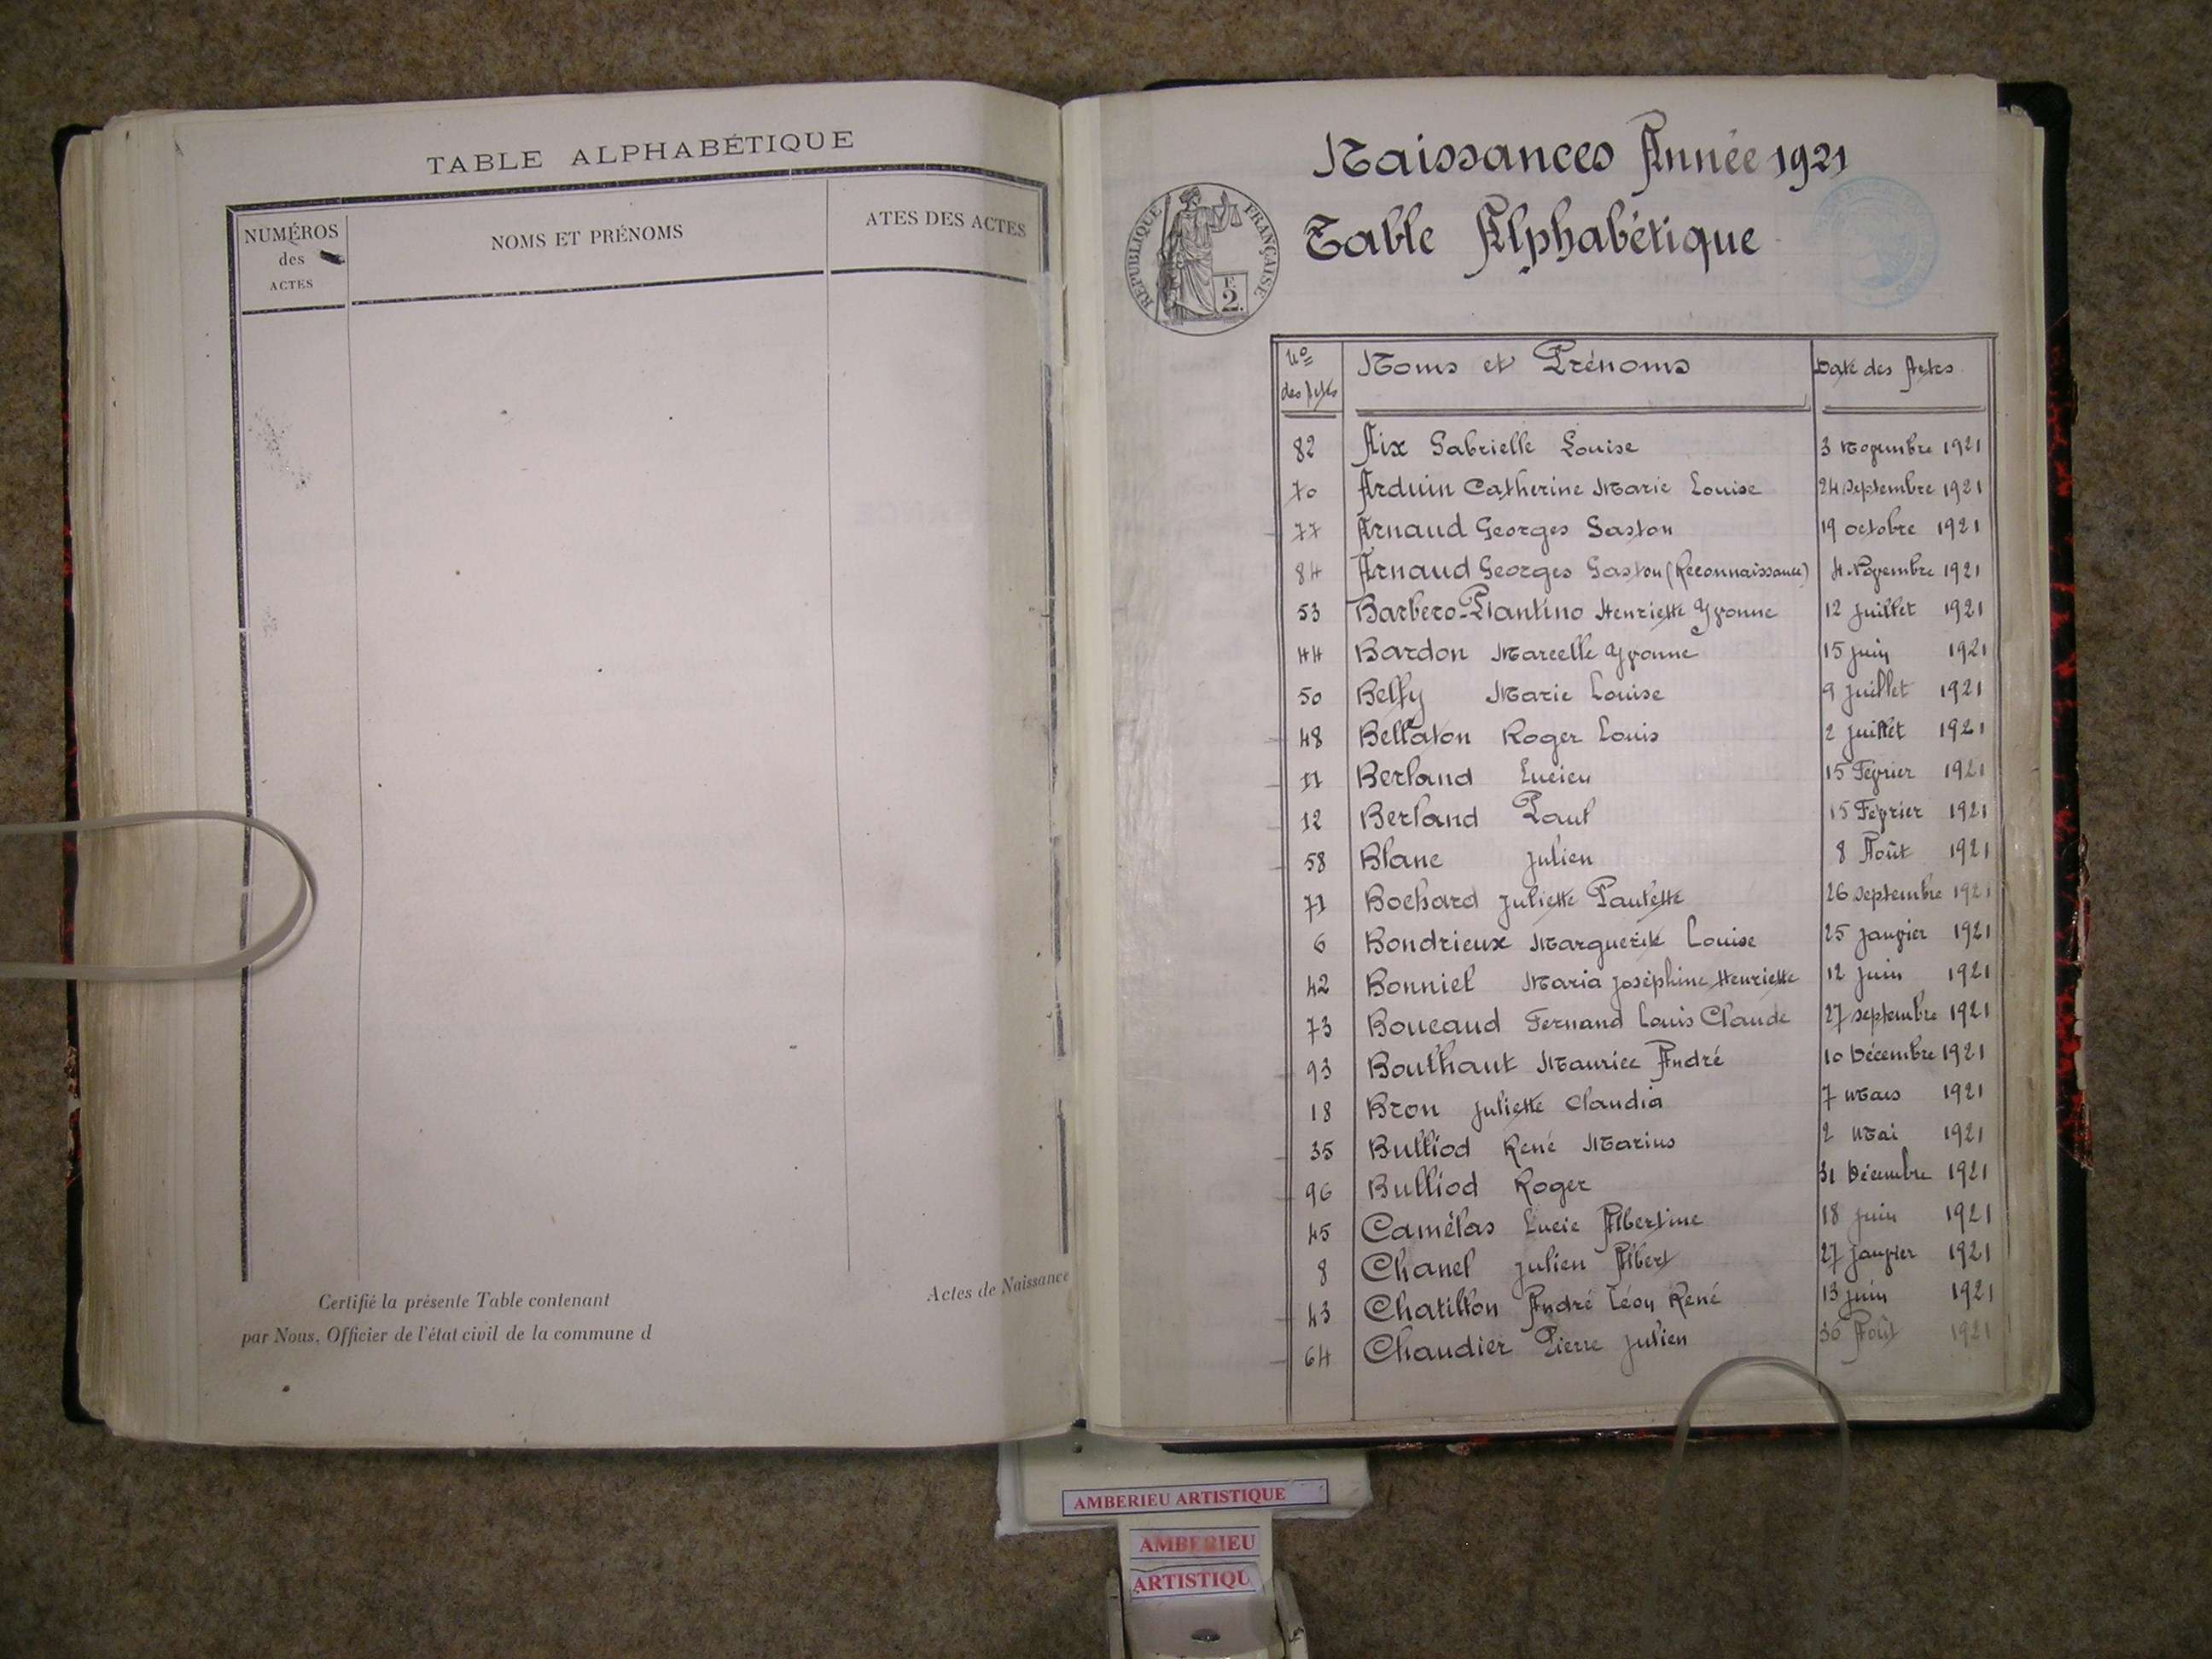 TABLE ALPHABÉTIQUE
NUMÉROS
des
ACTES
NOMS ET PRÉNOMS
ATES DES ACTES
Certifié la présente Table contenant
par Nous, Officier de l'état civil de la commune d
Actes de Naissance
Naissances Année 1921
Table Alphabétique
RÉPUBLIQUE FRANÇAISE
F.
2.
Nº
des Actes
Noms et Prénoms
Date des Actes
82 Aix Gabrielle Louise 3 Novembre 1921
70 Arduin Catherine Marie Louise 24 Septembre 1921
77 Arnaud Georges Gaston 19 octobre 1921
84 Arnaud Georges Gaston (Reconnaissance) 4 Novembre 1921
53 Barbero-Piantino Henriette Yvonne 12 Juillet 1921
44 Bardon Marcelle Yvonne 15 juin 1921
50 Belfy Marie Louise 9 juillet 1921
48 Bellaton Roger Louis 2 juillet 1921
11 Berland Lucien 15 Février 1921
12 Berland Paul 15 Février 1921
58 Blanc Julien 8 Août 1921
71 Bochard Juliette Paulette 26 septembre 1921
6 Bondrieux Marguerite Louise 25 janvier 1921
42 Bonniel Maria Joséphine Henriette 12 juin 1921
73 Boucaud Fernand Louis Claude 27 septembre 1921
93 Bouthaut Maurice André 10 Décembre 1921
18 Bron Juliette Claudia 7 Mars 1921
35 Bulliod René Marius 2 Mai 1921
96 Bulliod Roger 31 Décembre 1921
45 Camélas Lucie Albertine 18 juin 1921
8 Chanel Julien Albert 27 janvier 1921
43 Chatillon André Léon René 13 juin 1921
64 Chaudier Pierre Julien 30 Août 1921
AMBERIEU ARTISTIQUE
AMBERIEU
ARTISTIQU